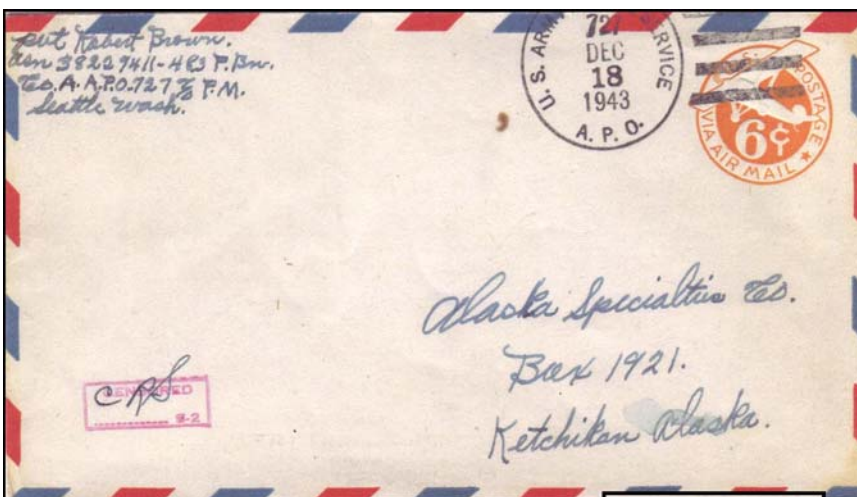 Pvt Robert Brown.
Asn 38229411-483 P.Bn.
Co. A. A.P.O. 727 % P.M.
Seattle Wash.
U.S. ARMY SERVICE
727
DEC
18
1943
A. P. O.
U.S. POSTAGE
6¢
VIA AIR MAIL
Alaska Specialties Co.
Box 1921.
Ketchikan Alaska.
CRS
CENSORED
S-2